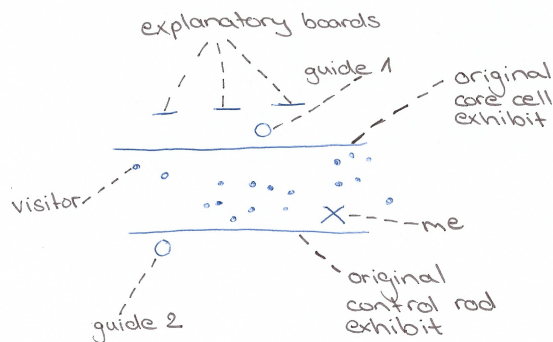 explanatory boards
guide 1
original
core cell
exhibit
visitor
me
original
control rod
exhibit
guide 2